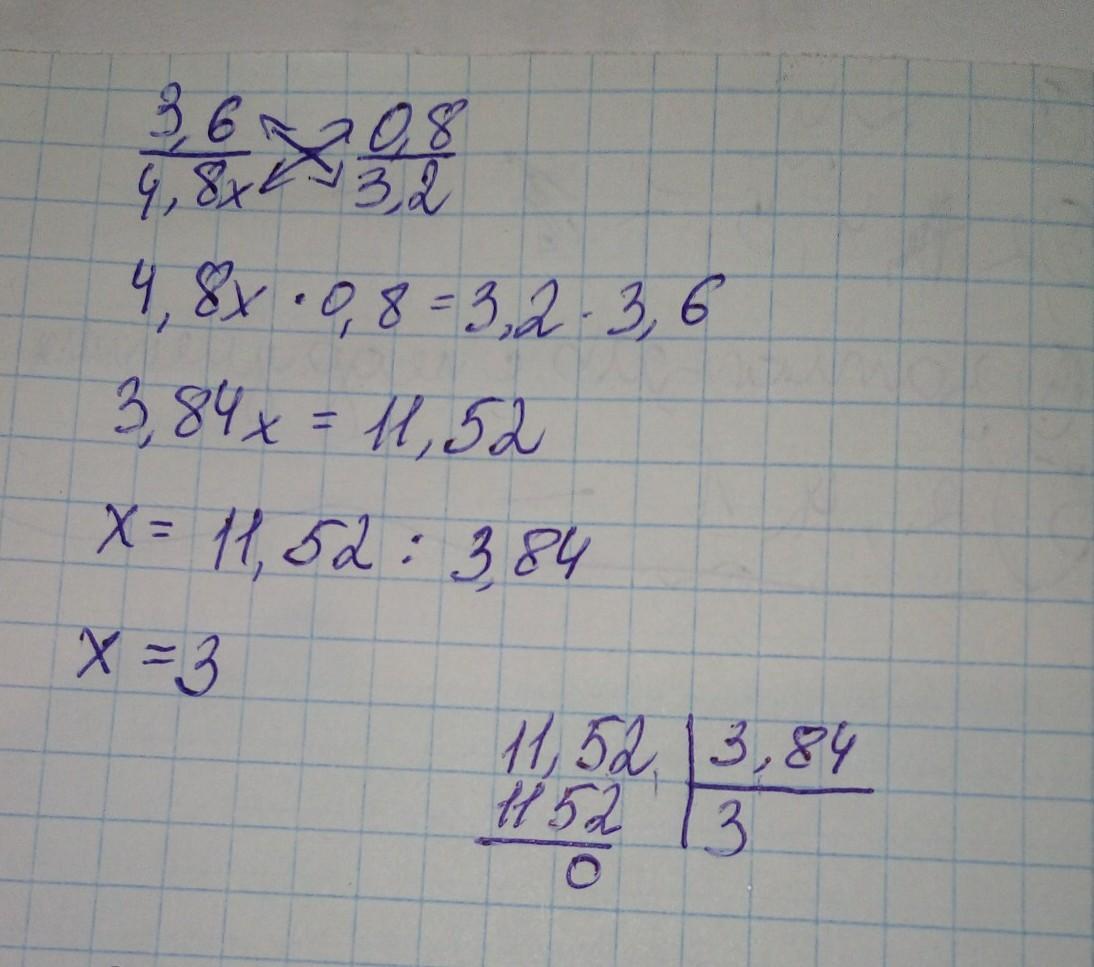 3,6 0,8
4,8x 3,2
4,8x · 0,8 = 3,2 · 3,6
3,84x = 11,52
x = 11,52 : 3,84
x = 3
11,52 3,84
1152 3
0